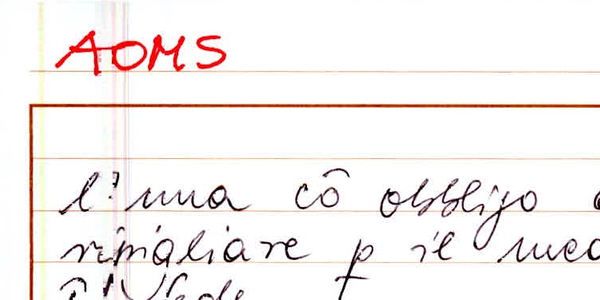 AOMS
l'una cô obbligo
ripigliare p il